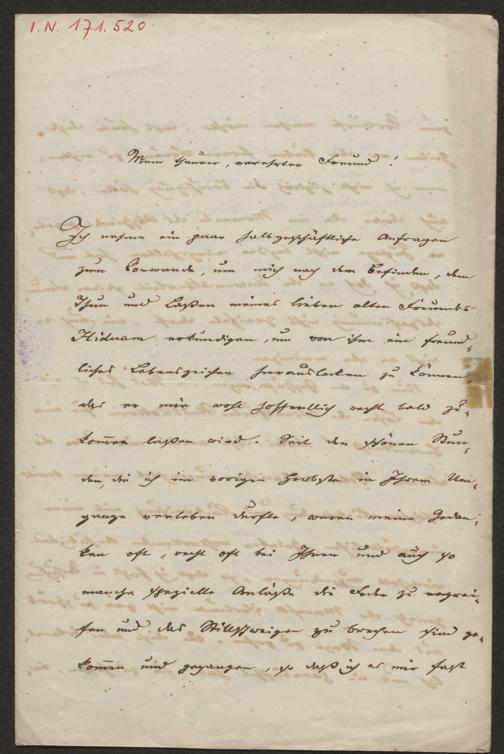 I.N. 171.520
Mein theurer, verehrter Freund!
Ich nehme ein paar halbgeschäftliche Anfragen
zum Vorwande, um mich nach dem Befinden, dem
Thun und Laßen meines lieben alten Freundes
erkundigen, um von ihm ein freund-
liches Lebenszeichen herauslocken zu können,
das er mir wohl hoffentlich recht bald zu-
kommen laßen wird. Seit den schönen Stun-
den, die ich im vorigen Herbste in Ihrem Um-
gange verleben durfte, waren meine Gedan-
ken oft, recht oft bei Ihnen und auch so
manche spezielle Anläße die Feder zu ergrei-
fen und das Stillschweigen zu brechen sind ge-
kommen und gegangen, so daß ich es mir fast